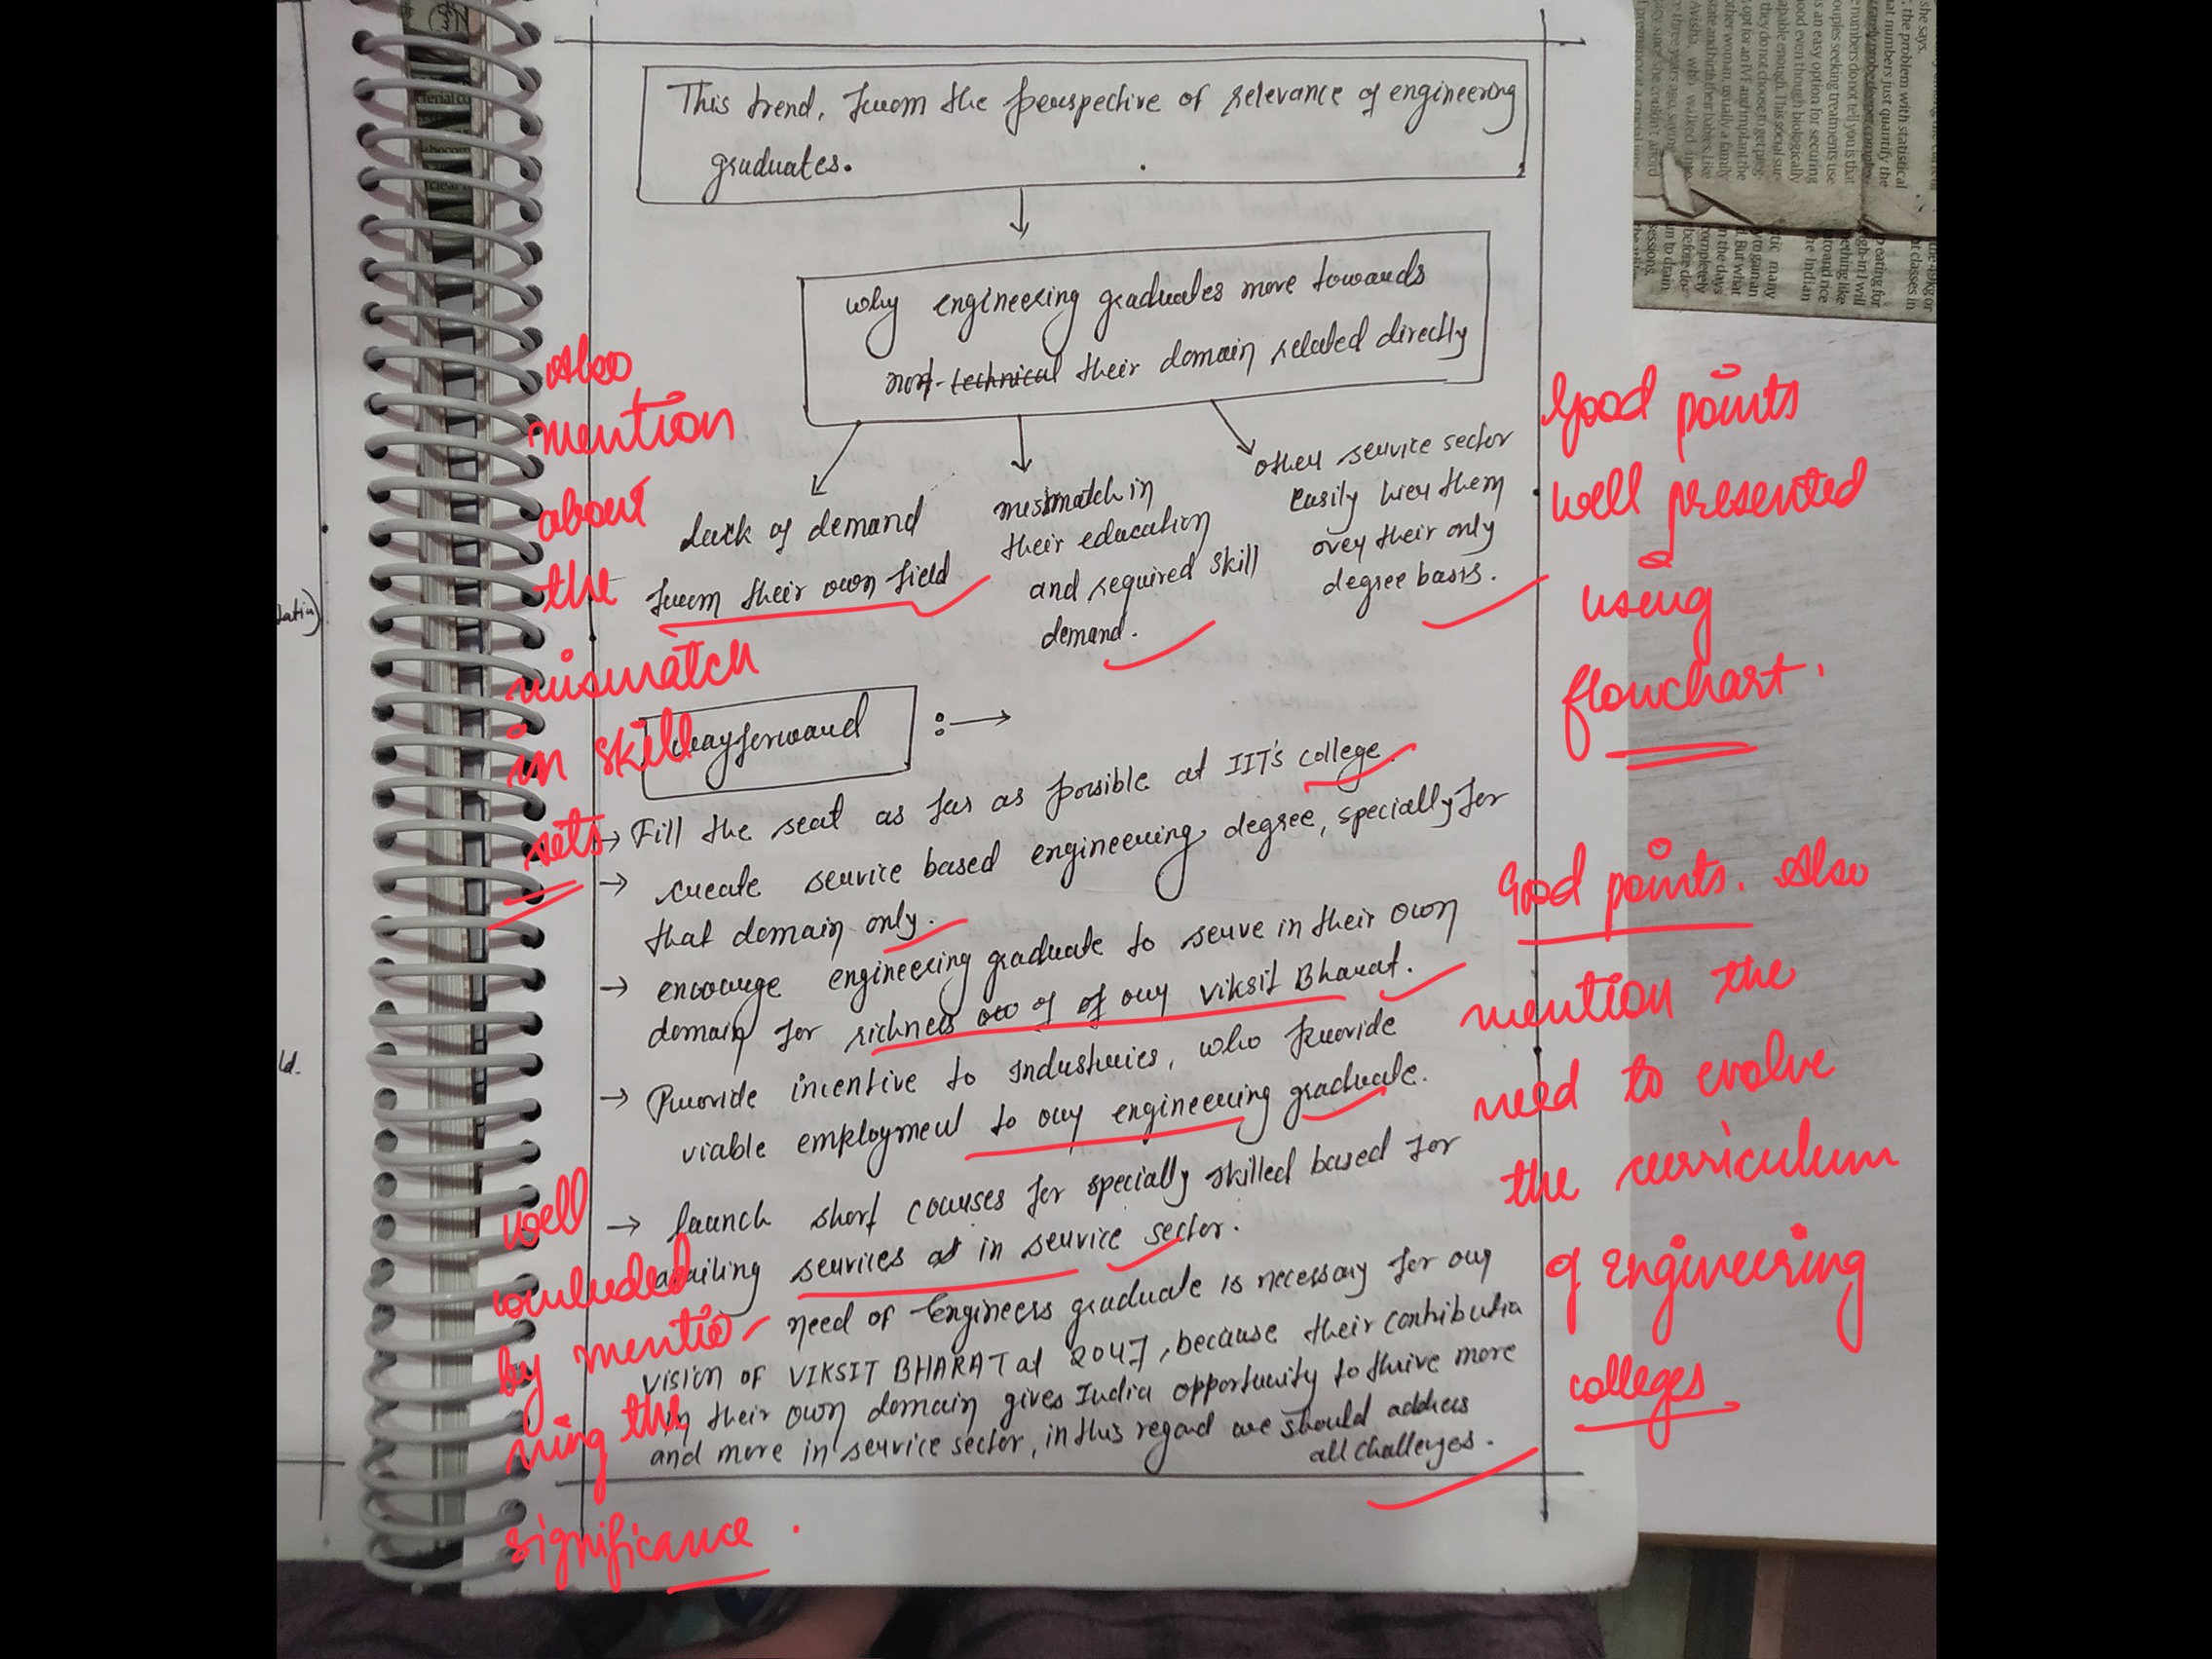 This trend, from the perspective of relevance of engineering
graduates.
why engineering graduates move towards
non-technical their domain related directly
lack of demand
from their own field
mismatch in
their education
and required skill
demand.
other service sector
easily hier them
over their only
degree basis.
Also
mention
about
the
mismatch
in skill
sets
Good points
well presented
using
flowchart.
wayforward :→
→ Fill the seat as far as possible at IIT's college.
→ create service based engineering degree, specially for
that domain only.
→ encourage engineering graduate to serve in their own
domain for richness of of our Viksit Bharat.
→ Provide incentive to Industries, who provide
viable employment to our engineering graduate.
→ launch short courses for specially skilled based for
availing services at in service sector.
need of Engineers graduate is necessary for our
vision of VIKSIT BHARAT at 2047, because their contribution
in their own domain gives India opportunity to thrive more
and more in service sector, in this regard we should address
all challenges.
Good points. Also
mention the
need to evolve
the curriculum
of engineering
colleges
well
concluded
by mentio-
ning the
significance.
she says.
the problem with statistical
hat numbers just quantify the
e numbers do not tell you is that
ouples seeking treatments use
s an easy option for securing
ood even though biologically
apable enough. This social sur-